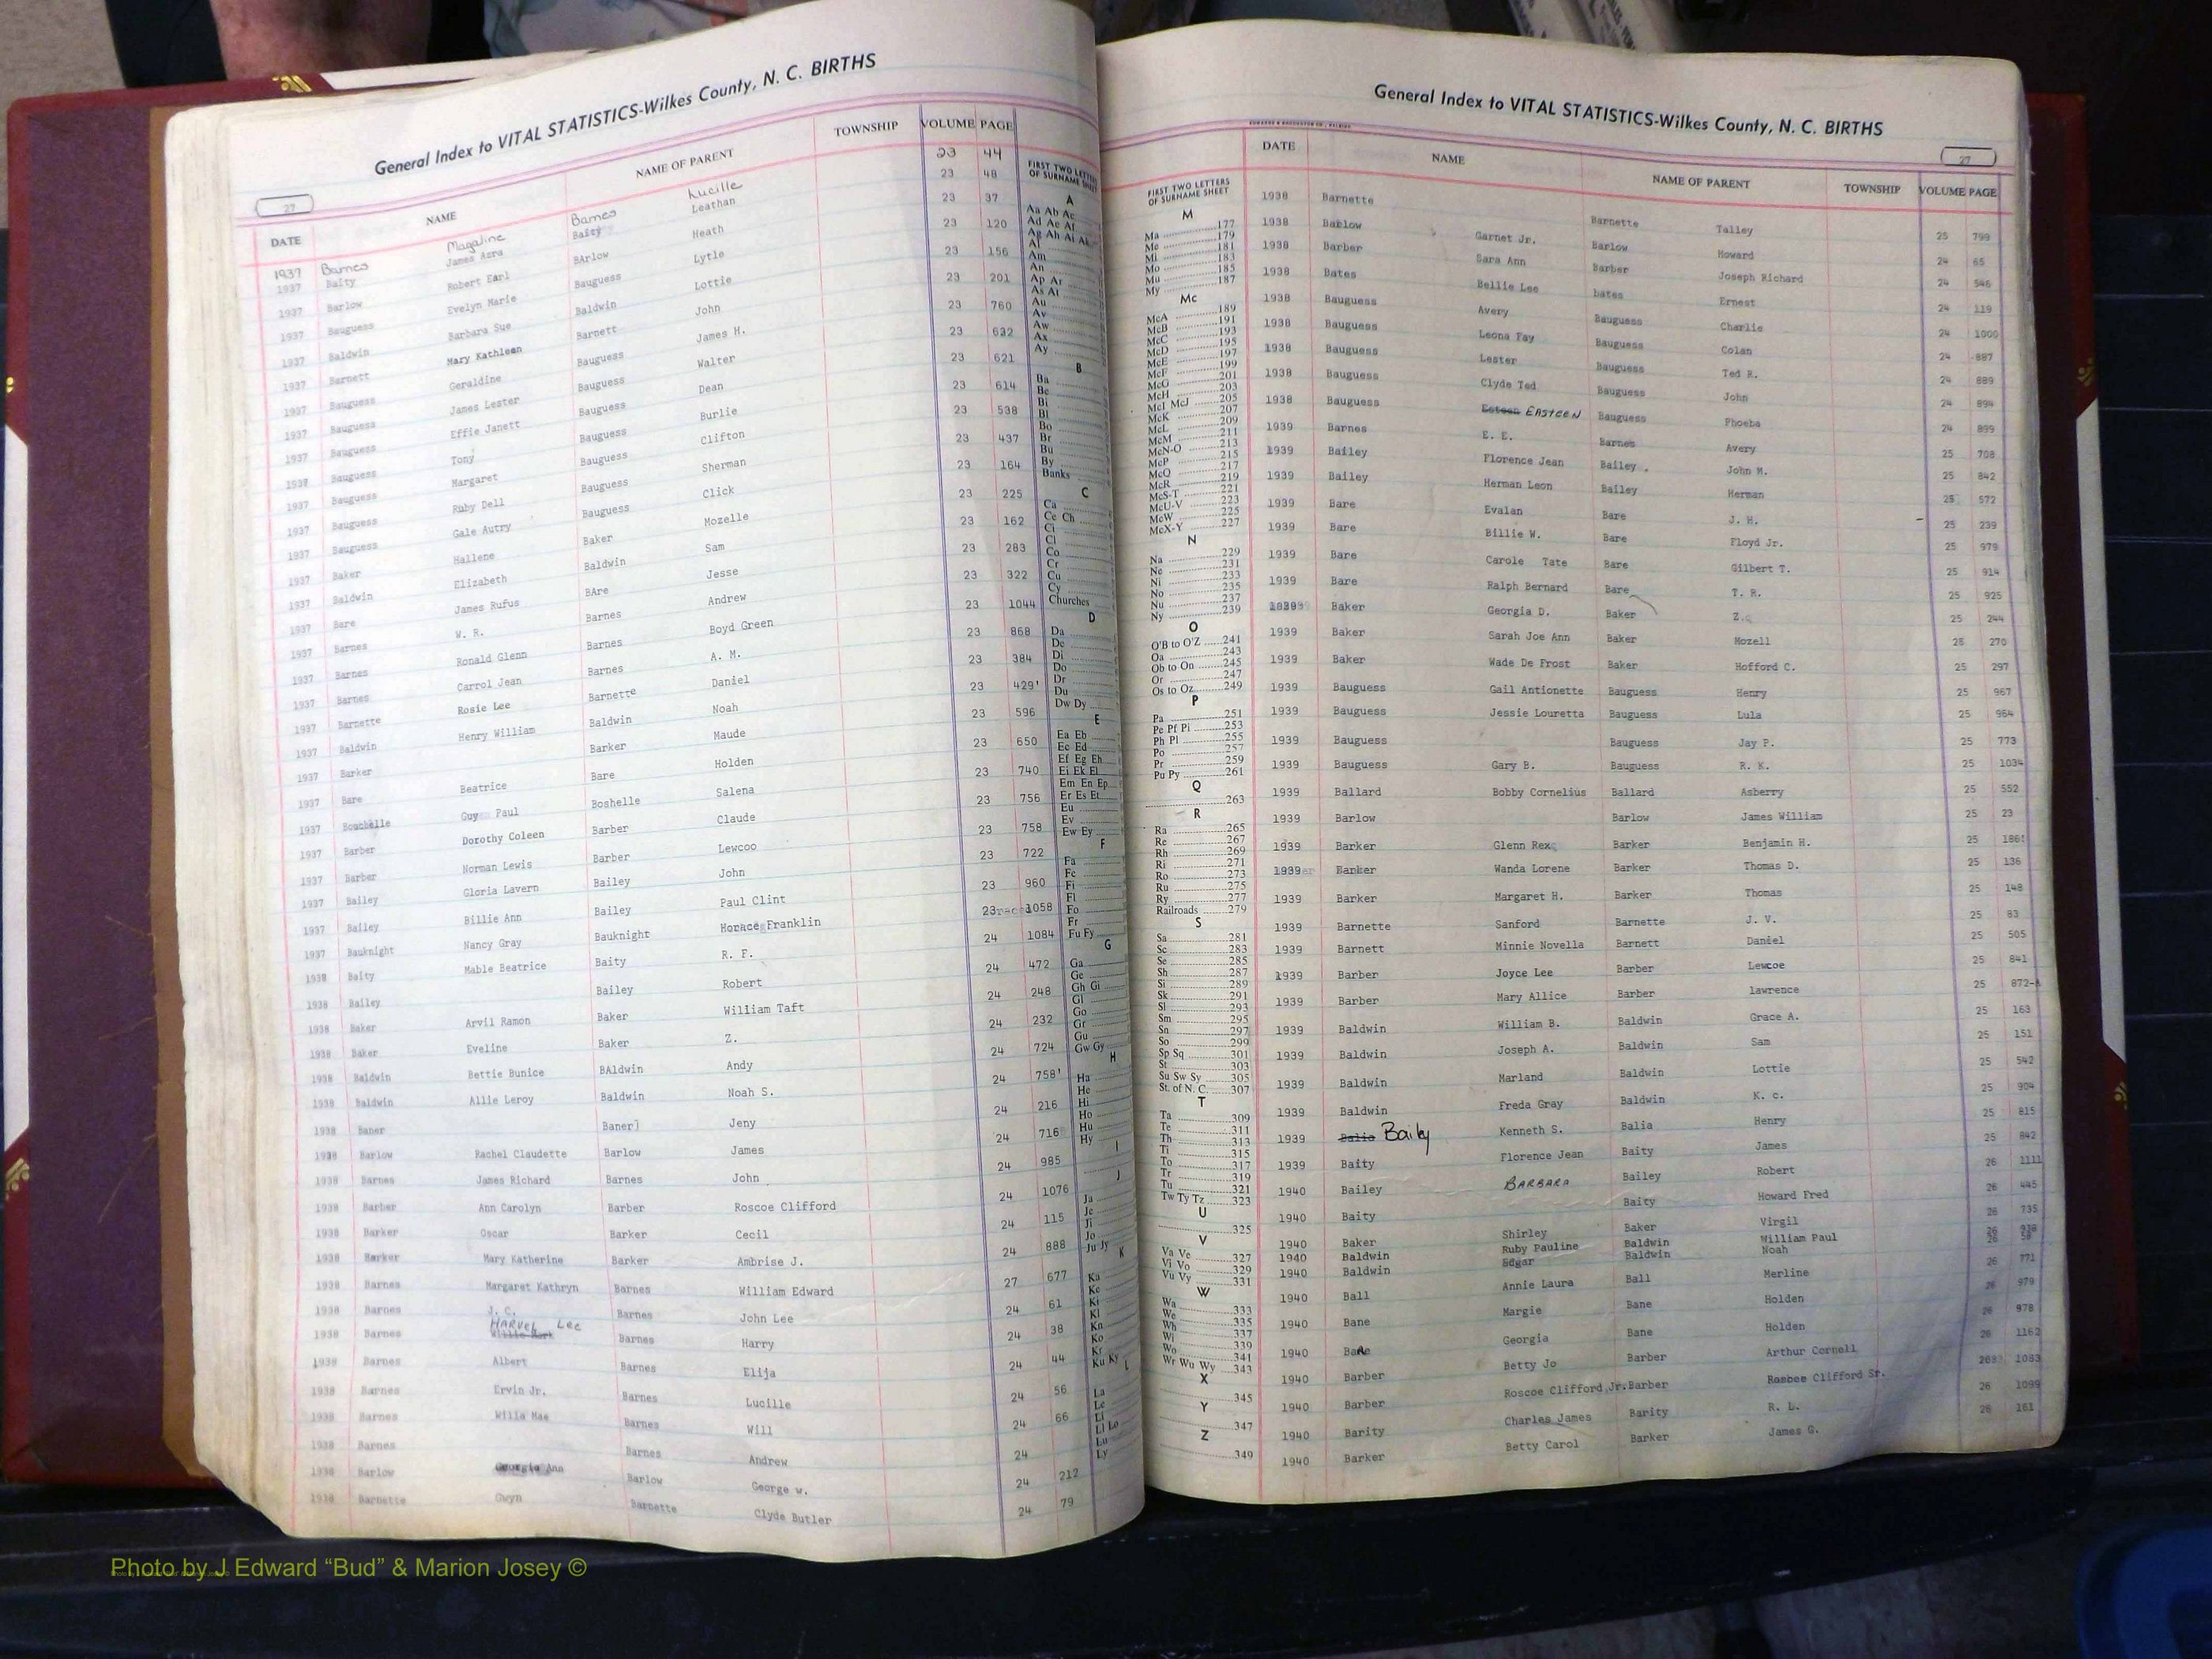 General Index to VITAL STATISTICS-Wilkes County, N. C. BIRTHS
27
DATE NAME NAME OF PARENT TOWNSHIP VOLUME PAGE
1937 Barnes Magaline Barnes Lucille 23 44
1937 Baity James Azra Baity Leathan 23 48
1937 Barlow Robert Earl BArlow Heath 23 37
1937 Bauguess Evelyn Marie Bauguess Lytle 23 120
1937 Baldwin Barbara Sue Baldwin Lottie 23 156
1937 Barnett Mary Kathleen Barnett John 23 201
1937 Bauguess Geraldine Bauguess James H. 23 760
1937 Bauguess James Lester Bauguess Walter 23 632
Bauguess Effie Janett Bauguess Dean 23 621
1937 Bauguess Tony Bauguess Burlie 23 614
1937 Bauguess Margaret Bauguess Clifton 23 538
1937 Bauguess Ruby Dell Bauguess Sherman 23 437
1937 Baker Gale Autry Baker Click 23 164
1937 Baldwin Hallene Baldwin Mozelle 23 225
1937 Bare Elizabeth BAre Sam 23 162
1937 Barnes James Rufus Barnes Jesse 23 283
1937 Barnes W. R. Barnes Andrew 23 322
1937 Barnes Ronald Glenn Barnes Boyd Green 23 1044
1937 Barnette Carrol Jean Barnette A. M. 23 868
1937 Baldwin Rosie Lee Baldwin Daniel 23 384
1937 Barker Henry William Barker Noah 23 429
1937 Bare Bare Maude 23 596
1937 Bouchelle Beatrice Boshelle Holden 23 650
1937 Barber Guy Paul Barber Salena 23 740
1937 Barber Dorothy Coleen Barber Claude 23 756
1937 Bailey Norman Lewis Bailey Lewcoo 23 758
1937 Bailey Gloria Lavern Bailey John 23 722
1937 Bauknight Billie Ann Bauknight Paul Clint 23 960
1938 Baity Nancy Gray Baity Horace Franklin 23 1058
1938 Bailey Mable Beatrice Bailey R. F. 24 1084
1938 Baker Baker Robert 24 472
1938 Baker Arvil Ramon Baker William Taft 24 248
1938 Baldwin Eveline BAldwin Z. 24 232
1938 Baldwin Bettie Bunice Baldwin Andy 24 724
1938 Baner Allie Leroy Baner] Noah S. 24 758'
1938 Barlow Rachel Claudette Barlow Jeny 24 216
1938 Barnes James Richard Barnes James 24 716
1938 Barber Ann Carolyn Barber John 24 985
1938 Barker Oscar Barker Roscoe Clifford 24 1076
1938 Barker Mary Katherine Barker Cecil 24 115
1938 Barnes Margaret Kathryn Barnes Ambrise J. 24 888
1938 Barnes J. C. Barnes William Edward 27 677
1938 Barnes HARVEL Lee Barnes John Lee 24 61
1938 Barnes Albert Barnes Harry 24 38
1938 Barnes Ervin Jr. Barnes Elija 24 44
1938 Barnes Willa Mae Barnes Lucille 24 56
1938 Barnes Barnes Will 24 66
1938 Barlow Georgia Ann Barlow Andrew 24
1938 Barnette Gwyn Barnette George w. 24 212
Clyde Butler 24 79
FIRST TWO LETTERS
OF SURNAME SHEET
A
Aa Ab Ac
Ad Ae Af
Ag Ah Ai Ak
Al
Am
An
Ap Ar
As At
Au
Av
Aw
Ax
Ay
B
Ba
Be
Bi
Bl
Bo
Br
Bu
By
Banks
C
Ca
Ce Ch
Ci
Cl
Co
Cr
Cu
Cy
Churches
D
Da
De
Di
Do
Dr
Du
Dw Dy
E
Ea Eb
Ec Ed
Ef Eg Eh
Ei Ek El
Em En Ep
Er Es Et
Eu
Ev
Ew Ey
F
Fa
Fe
Fi
Fl
Fo
Fr
Fu Fy
G
Ga
Ge
Gh Gi
Gl
Go
Gr
Gu
Gw Gy
H
Ha
He
Hi
Ho
Hu
Hy
I
J
Ja
Je
Ji
Jo
Ju Jy
K
Ka
Ke
Ki
Kl
Kn
Ko
Kr
Ku Ky
L
La
Le
Li
Ll Lo
Lu
Ly
General Index to VITAL STATISTICS-Wilkes County, N. C. BIRTHS
27
FIRST TWO LETTERS
OF SURNAME SHEET
M
Ma 177
Me 179
Mi 181
Mo 183
Mu 185
My 187
Mc
McA 189
McB 191
McC 193
McD 195
McE 197
McF 199
McG 201
McH 203
McI McJ 205
McK 207
McL 209
McM 211
McN-O 213
McP 215
McQ 217
McR 219
McS-T 221
McU-V 223
McW 225
McX-Y 227
N
Na 229
Ne 231
Ni 233
No 235
Nu 237
Ny 239
O
O'B to O'Z 241
Oa 243
Ob to On 245
Or 247
Os to Oz 249
P
Pa 251
Pe Pf Pi 253
Ph Pl 255
Po 257
Pr 259
Pu Py 261
Q
263
R
Ra 265
Re 267
Rh 269
Ri 271
Ro 273
Ru 275
Ry 277
Railroads 279
S
Sa 281
Sc 283
Se 285
Sh 287
Si 289
Sk 291
Sl 293
Sm 295
Sn 297
So 299
Sp Sq 301
St 303
Su Sw Sy 305
St. of N. C. 307
T
Ta 309
Te 311
Th 313
Ti 315
To 317
Tr 319
Tu 321
Tw Ty Tz 323
U
325
V
Va Ve 327
Vi Vo 329
Vu Vy 331
W
Wa 333
We 335
Wh 337
Wi 339
Wo 341
Wr Wu Wy 343
X
345
Y
347
Z
349
DATE NAME NAME OF PARENT TOWNSHIP VOLUME PAGE
1938 Barnette Barnette Talley 25 799
1938 Barlow Garnet Jr. Barlow Howard 24 65
1938 Barber Sara Ann Barber Joseph Richard 24 546
1938 Bates Bellie Lee bates Ernest 24 119
1938 Bauguess Avery Bauguess Charlie 24 1000
1938 Bauguess Leona Fay Bauguess Colan 24 887
1938 Bauguess Lester Bauguess Ted R. 24 889
1938 Bauguess Clyde Ted Bauguess John 24 894
1938 Bauguess EASTEEN Bauguess Phoeba 24 899
1939 Barnes E. E. Barnes Avery 25 708
1939 Bailey Florence Jean Bailey John M. 25 842
1939 Bailey Herman Leon Bailey Herman 25 572
1939 Bare Evalan Bare J. H. 25 239
1939 Bare Billie W. Bare Floyd Jr. 25 979
1939 Bare Carole Tate Bare Gilbert T. 25 914
1939 Bare Ralph Bernard Bare T. R. 25 925
Baker Georgia D. Baker Z. 25 244
1939 Baker Sarah Joe Ann Baker Mozell 25 270
1939 Baker Wade De Frost Baker Hofford C. 25 297
1939 Bauguess Gail Antionette Bauguess Henry 25 967
1939 Bauguess Jessie Louretta Bauguess Lula 25 964
1939 Bauguess Bauguess Jay P. 25 773
1939 Bauguess Gary B. Bauguess R. K. 25 1034
1939 Ballard Bobby Cornelius Ballard Asberry 25 552
1939 Barlow Barlow James William 25 23
1939 Barker Glenn Rex Barker Benjamin H. 25
1939 Barker Wanda Lorene Barker Thomas D. 25 136
1939 Barker Margaret H. Barker Thomas 25 148
1939 Barnette Sanford Barnette J. V. 25 83
1939 Barnett Minnie Novella Barnett Daniel 25 505
1939 Barber Joyce Lee Barber Lewcoe 25 841
1939 Barber Mary Allice Barber lawrence 25 872-A
1939 Baldwin William B. Baldwin Grace A. 25 163
1939 Baldwin Joseph A. Baldwin Sam 25 151
1939 Baldwin Marland Baldwin Lottie 25 542
1939 Baldwin Freda Gray Baldwin K. c. 25 904
1939 Balia Baily Kenneth S. Balia Henry 25 815
1939 Baity Florence Jean Baity James 25 842
1940 Bailey BARBARA Bailey Robert 26 1111
1940 Baity Baity Howard Fred 26 445
1940 Baker Shirley Baker Virgil 26 735
1940 Baldwin Ruby Pauline Baldwin William Paul 26 938
1940 Baldwin Edgar Baldwin Noah 26
1940 Ball Annie Laura Ball Merline 26 771
1940 Bane Margie Bane Holden 26 979
1940 Georgia Bane Holden 26 978
1940 Barber Betty Jo Barber Arthur Cornell 26 1162
1940 Barber Roscoe Clifford Jr. Barber Roscoe Clifford Sr. 1083
1940 Barity Charles James Barity R. L. 26 1099
1940 Barker Betty Carol Barker James G. 26 161
Photo by J Edward “Bud” & Marion Josey ©